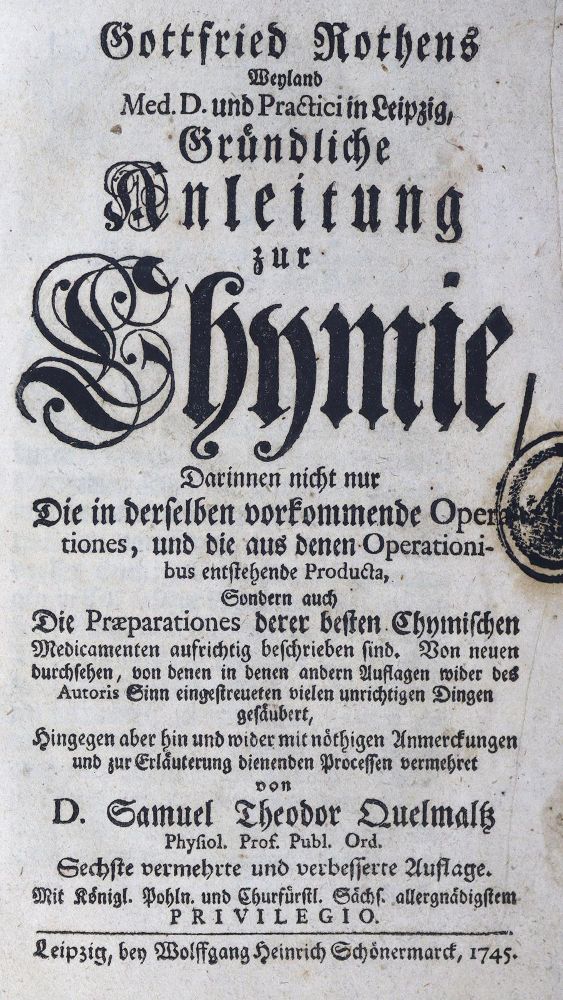 Gottfried Rothens
Weyland
Med. D. und Practici in Leipzig,
Gründliche
Anleitung
zur
Chymie
Darinnen nicht nur
Die in derselben vorkommende Opera-
tiones, und die aus denen Operationi-
bus entstehende Producta,
Sondern auch
Die Præparationes derer besten Chymischen
Medicamenten aufrichtig beschrieben sind. Von neuen
durchsehen, von denen in denen andern Auflagen wider des
Autoris Sinn eingestreueten vielen unrichtigen Dingen
gesäubert,
Hingegen aber hin und wider mit nöthigen Anmerckungen
und zur Erläuterung dienenden Processen vermehret
von
D. Samuel Theodor Quelmaltz
Physiol. Prof. Publ. Ord.
Sechste vermehrte und verbesserte Auflage.
Mit Königl. Pohln. und Churfürstl. Sächs. allergnädigstem
PRIVILEGIO.
Leipzig, bey Wolffgang Heinrich Schönermarck, 1745.